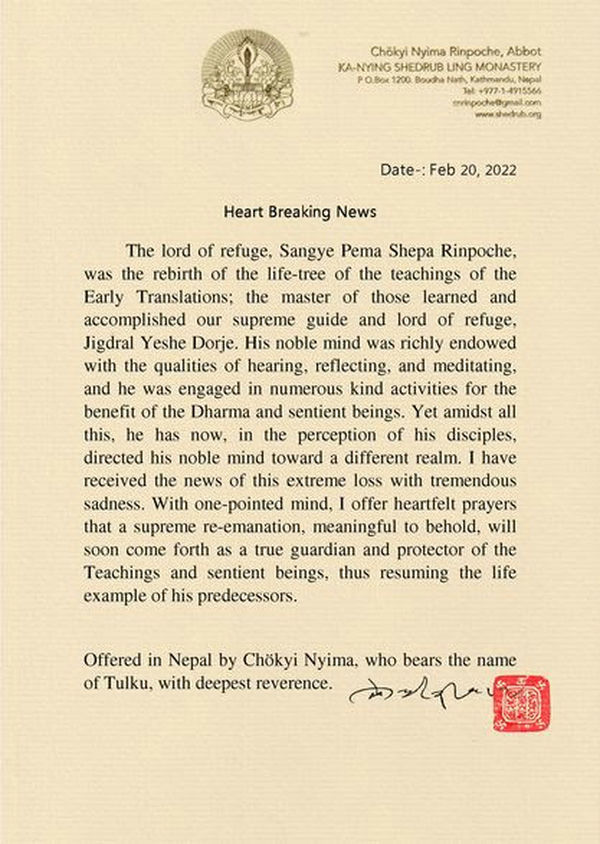 Chökyi Nyima Rinpoche, Abbot
KA-NYING SHEDRUB LING MONASTERY
P O.Box 1200. Boudha Nath, Kathmandu, Nepal
Tel: +977-1-4915566
cnrinpoche@gmail.com
www.shedrub.org
Date-: Feb 20, 2022
Heart Breaking News
The lord of refuge, Sangye Pema Shepa Rinpoche,
was the rebirth of the life-tree of the teachings of the
Early Translations; the master of those learned and
accomplished our supreme guide and lord of refuge,
Jigdral Yeshe Dorje. His noble mind was richly endowed
with the qualities of hearing, reflecting, and meditating,
and he was engaged in numerous kind activities for the
benefit of the Dharma and sentient beings. Yet amidst all
this, he has now, in the perception of his disciples,
directed his noble mind toward a different realm. I have
received the news of this extreme loss with tremendous
sadness. With one-pointed mind, I offer heartfelt prayers
that a supreme re-emanation, meaningful to behold, will
soon come forth as a true guardian and protector of the
Teachings and sentient beings, thus resuming the life
example of his predecessors.
Offered in Nepal by Chökyi Nyima, who bears the name
of Tulku, with deepest reverence.